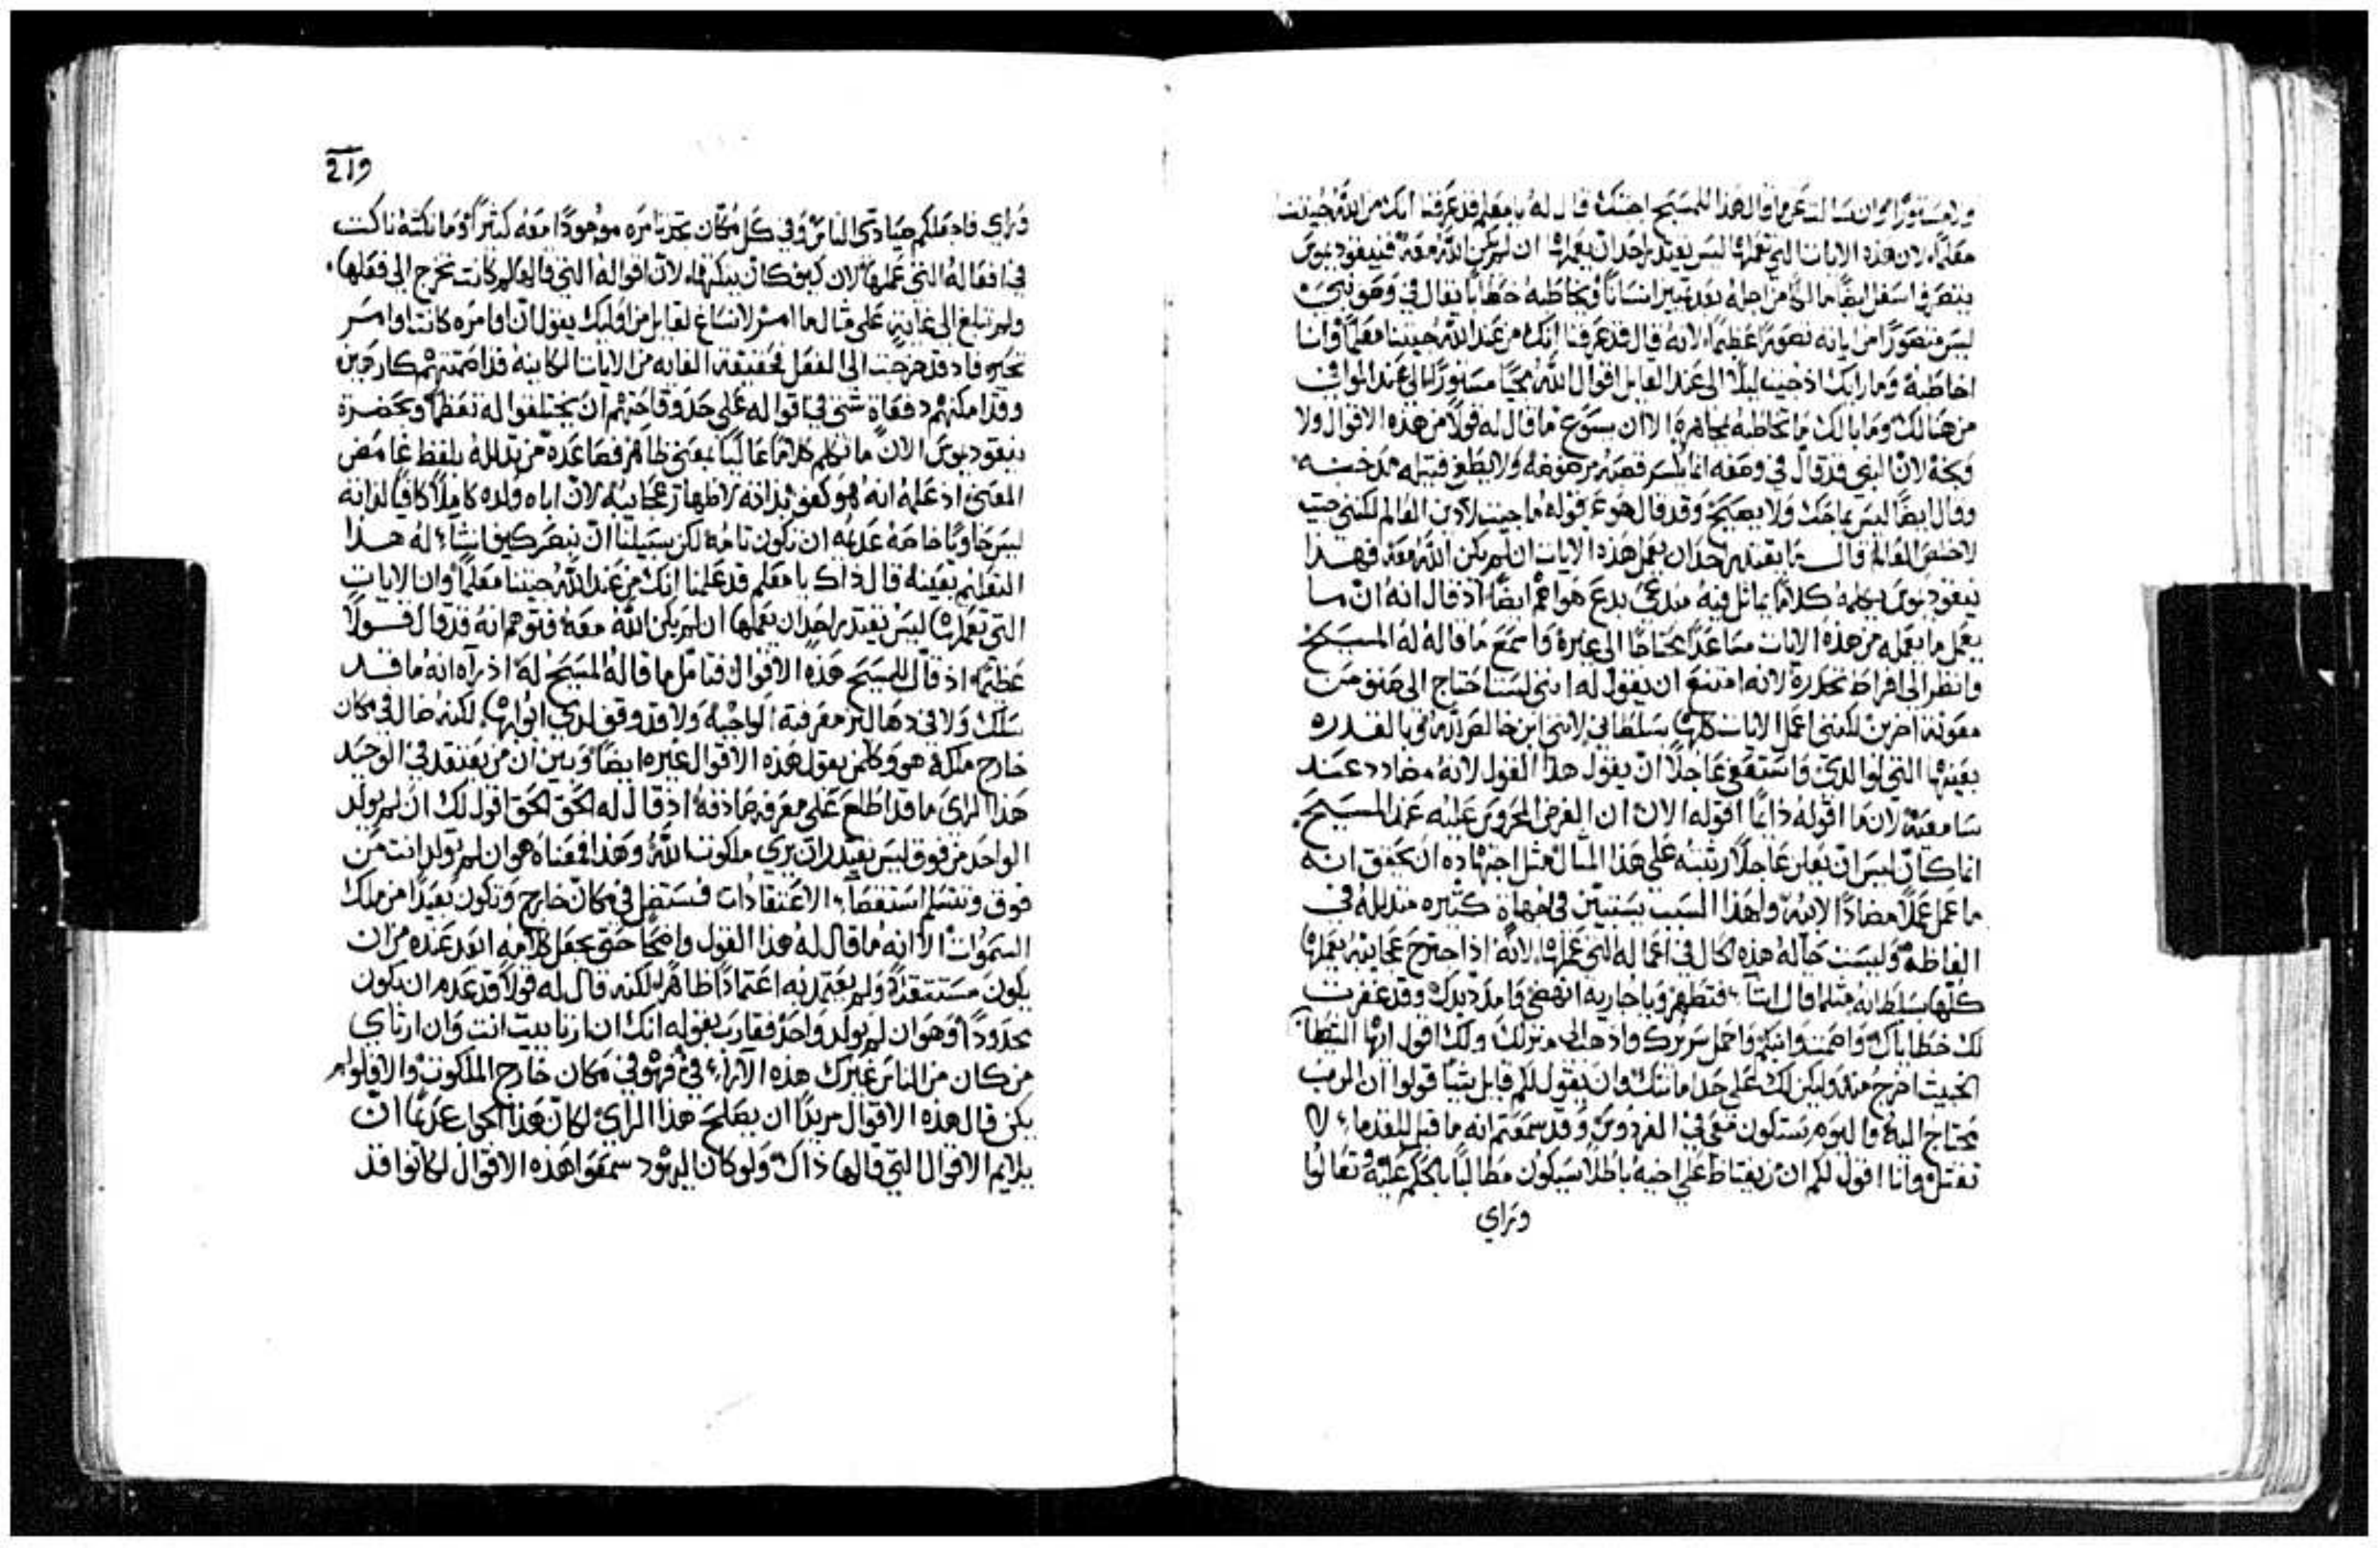 ولا مستورًا وان سالت عن ما قال هذا للمسيح اجبتك قال له يا معلم قد عرفنا انك من الله جيتنا
معلمًا لان هذه الايات التي تعملها ليس يقتدر احد ان يعملها ان لم يكن الله معه فنيقوديموس
ينصرف اسفل ايضًا مالكًا من اجله بعد تمييز انسانًا ويخاطبه خطابًا يقال في وصو نبي
ليس متصورًا من اياته تصورًا عظيمًا لانه قال قد عرفنا انك من عند الله جيتنا معلمًا وانا
اخاطبه وما رايك اذ جيت ليلًا الى عند القايل اقوال الله مجيًا مستورًا الى عند الوافي
من هنالك وما بالك ما تخاطبه مجاهرة الا ان يسوع ما قال له قولًا من هذه الاقوال ولا
وبخه لان النبي قد قال في وصفه انه ما يكسر قصبة مرضوضة ولا يطفي فتيله مدخنه
وقال ايضًا ليس يماحك ولا يصيح وقد قال هو عن قوله ما جيت لادين العالم لكنني جيت
لاخلص العالم قال ما يقتدر احد ان يعمل هذه الايات ان لم يكن الله معه فهذا
نيقوديموس يكلمه كلامًا يماثل فيه مبدعي بدع هواهم ايضًا اذ قال انه ان ما
يعمل ما يعمله من هذه الايات مساعدًا محتاجًا الى غيره فاسمع ما قاله له المسيح
وانظر الى افراط تحدره لانه امتنع ان يقول له انني لست احتاج الى صنف من
معونة اخرين لكنني اعمل الايات كلها بسلطاني لانني ابن خالص لله فى بالقدره
بعينها التي لوالدي فاستعفى عاجلًا ان يقول هذا القول لانه مضادد عند
سامعيه لان ما اقوله دايمًا اقوله الان ان الغرض المحروص عليه عند المسيح
انما كان ليس ان يعلن عاجلًا رتبته على هذا المثال مثل اجتهاده ان يحقق انه
ما عمل عملًا مضادًا لابيه ولهذا السبب يستبين في جهاة كثيره متذللًا في
الفاظه وليست حاله هذه الحال في اعماله التي عملها لانه اذا اجترح عجايبه يعملها
كلها بسلطانه مثلما قال اشآ فتطهر ويا جاريه انهضي فامدد يدك وقد غفرت
لك خطاياك واصمت وانبكم واحمل سريرك واذهب الى منزلك ولك اقول ايها الشيطان
الخبيث اخرج منه وليكن لك على حد ما شئت وان يقول لكم قايل شيًا قولوا ان الرب
محتاج اليه واليوم ستكون معي في الفردوس وقد سمعتم انه ما قيل للقدما، لا
تقتل وانا اقول لكم ان من يغتاظ على اخيه باطلًا سيكون مطالبًا بالحكم عليه وتعالوا
وراي
219
وراي فاجعلكم صيادي الناس وفي كل مكان تجد تامره موجودًا معه كثيرًا وما نكتة ناكت
في افعاله التي عملها لان كيف كان ينكتها لان اقواله التي قالها لو لم كانت تخرج الى فعلها
ولم تبلغ الى غايته على مثال ما امر لانساغ لقايل من اوليك يقول ان اوامره كانت اوامر
تحير فاذ قد خرجت الى الفعل بحقيقة اتقانه من الايات الكاينه قد اصمتتهم كارهين
وقد امكنهم دفعاة شتى في اقواله على حد وقاحتهم ان يختلقوا له تعظمًا وبحضرة
نيقوديموس الان ما تكلم كلامًا عاليًا بمعنى ظاهر فصاعده من تذلله بلفظ غامض
المعنى اذ علمه انه هو كفو بذاته لاظهار عجايبه لان اباه ولده كاملًا كافيًا لذاته
ليس حاويًا خاصة عدمه ان تكون تامه لكن سبيلنا ان نبصر كيف انشاء له هذا
التعليم بعينه قال ذاك يا معلم قد علمنا انك من عند الله جيتنا معلمًا وان الايات
التي تعملها ليس يقتدر احد ان يعملها ان لم يكن الله معه فتوهم انه قد قال قولًا
عظيمًا اذ قال للمسيح هذه الاقوال فتامل ما قاله المسيح له اذ رآه انه ما قد
سلك ولا في دهاليز معرفته الواجبه ولا قد وقف لدي ابوابها لكنه ضال في مكان
خارج ملكه هو وكلمن يقول هذه الاقوال غيره ايضًا وبين ان من يعتقد في الوحيد
هذا الراي ما قد اطلع على معرفه صادقه اذ قال له الحق الحق اقول لك ان لم يولد
الواحد من فوق ليس يقتدر ان يري ملكوت الله وهذا فمعناه هو ان لم تولد انت من
فوق وتتسلم استقصاء الاعتقادات فستضل في مكان خارج وتكون بعيدًا من ملك
السموات الا انه ما قال له هذا القول واضحًا حتى يجعل كلامه ابعد عنده من ان
يكون مستثقلًا ولم يعتمد به اعتمادًا ظاهرًا لكنه قال له قولًا قد عدم ان يكون
محدودًا وهو ان لم يولد واحد فقارب بقوله انك ان ارتابيت انت وان ارتاي
من كان من الناس غيرك هذه الآراء في فهو في مكان خارج الملكوت والا فلو لم
يكن قال هذه الاقوال مريدًا ان يصلح هذا الراي لكان هذا الجواب عديمًا ان
يلايم الاقوال التي قالها ذاك ولو كان اليهود سمعوا هذه الاقوال لكانوا قد